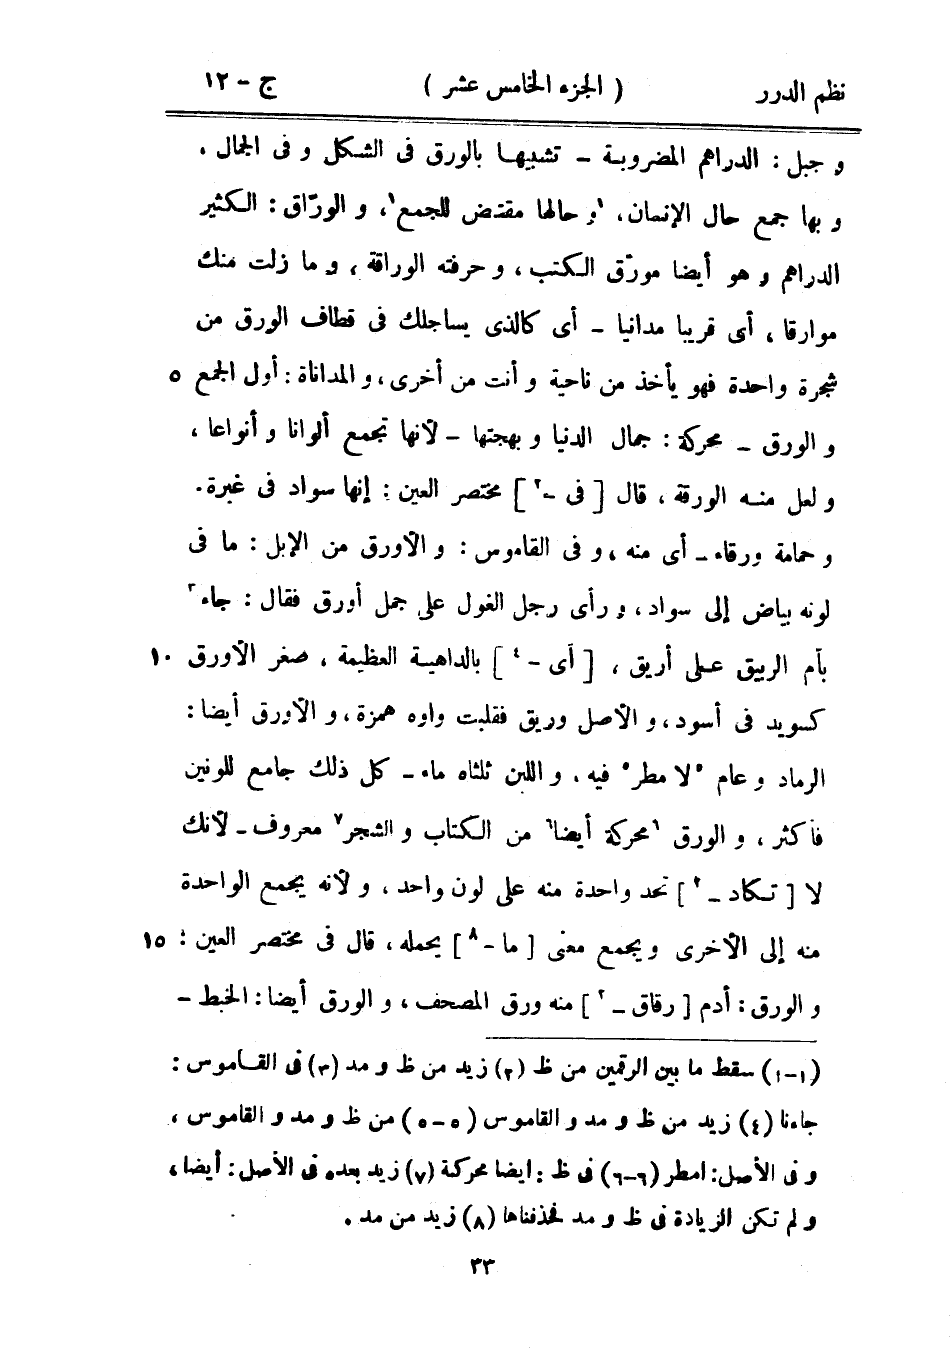 نظم الدرر ( الجزء الخامس عشر ) ج - ١٢
و جبل : الدراهم المضروبة - تشبيها بالورق فى الشكل و فى الجمال ،
و بها جمع حال الإنسان، ١و حالها مقتض للجمع١، و الورّاق : الكثير
الدراهم و هو أيضا مورّق الكتب ، و حرفته الوراقة ، و ما زلت منك
موارقا ، أى قريبا مدانيا - أى كالذى يساجلك فى قطاف الورق من
شجرة واحدة فهو يأخذ من ناحية و أنت من أخرى ، و المداناة : أول الجمع ٥
و الورق - محركة : جمال الدنيا و بهجتها - لأنها تجمع ألوانا و أنواعا ،
و لعل منه الورقة ، قال [ فى -٢ ] مختصر العين : إنها سواد فى غبرة.
و حمامة ورقاء - أى منه ، و فى القاموس : و الأورق من الإبل : ما فى
لونه بياض إلى سواد ، و رأى رجل الغول على جمل أورق فقال : جاء٣
بأم الربيق على أريق ، [ أى -٤ ] بالداهية العظيمة ، صغر الأورق ١٠
كسويد فى أسود ، و الأصل وريق فقلبت واوه همزة ، و الأورق أيضا :
الرماد و عام ٥لا مطر٥ فيه ، و اللبن ثلثاه ماء - كل ذلك جامع للونين
فأكثر ، و الورق ٦محركة أيضا٦ من الكتاب و الشجر٧ معروف - لأنك
لا [ تكاد -٢ ] تحد واحدة منه على لون واحد ، و لأنه يجمع الواحدة
منه إلى الأخرى و يجمع معنى [ ما -٨ ] يحمله ، قال فى مختصر العين : ١٥
و الورق : أدم [ رقاق -٢ ] منه ورق المصحف ، و الورق أيضا : الخبط -
(١-١) سقط ما بين الرقمين من ظ (٢) زيد من ظ و مد (٣) فى القاموس :
جاءنا (٤) زيد من ظ و مد و القاموس (٥-٥) من ظ و مد و القاموس ،
و فى الأصل : امطر (٦-٦) فى ظ : ايضا محركة (٧) زيد بعده فى الأصل : أيضا ،
و لم تكن الزيادة فى ظ و مد فحذفناها (٨) زيد من مد .
٣٣